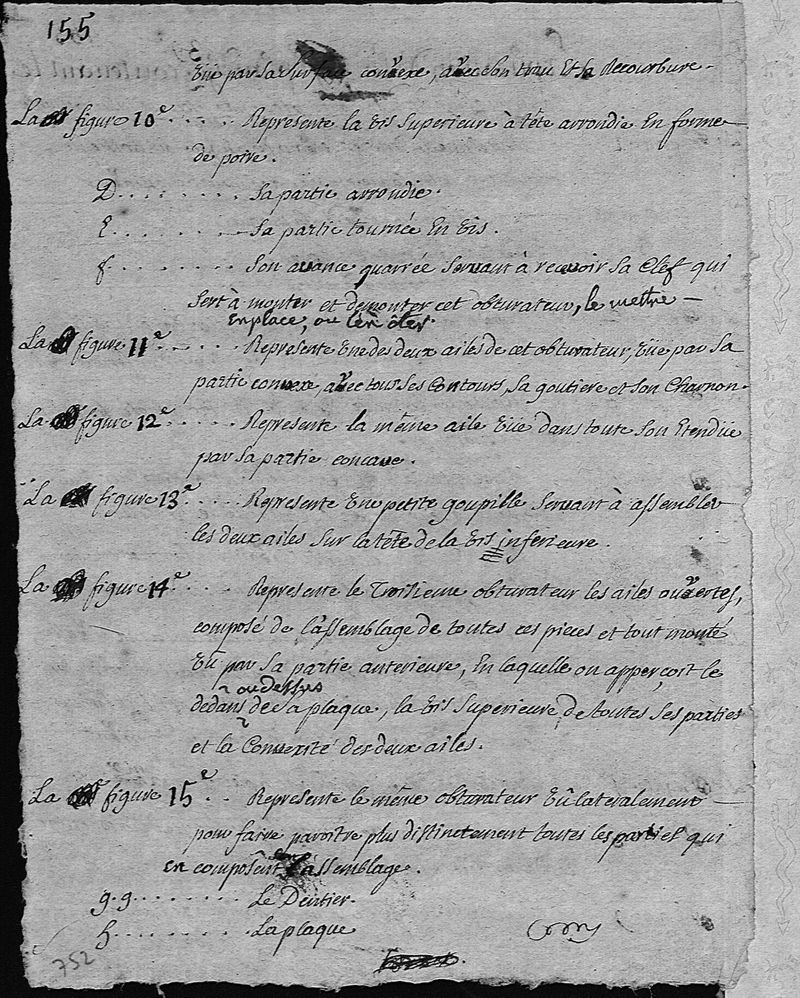 155
Vüe par sa surface convexe, avec son trou Et sa Recourbure.
La figure 10e..... Represente la vis superieure à tête arrondie En forme
de poire.
D......... sa partie arrondie.
E......... sa partie tournée En vis.
f......... son avance quarrée servant à recevoir sa Clef qui
sert à monter et demonter cet obturateur, le mettre
En place, ou l'en ôter.
La figure 11e..... Represente Une des deux ailes de cet obturateur, vüe par sa
partie convexe, avec tous ses Contours, sa goutiere et son Charnon.
La figure 12e..... Represente la même aile vüe dans toute son Etendüe
par sa partie concave.
La figure 13e..... Represente Une petite goupille servant à assembler
les deux ailes sur la tête de la vis inferieure.
La figure 14e..... Represente le Troisieme obturateur les ailes ouvertes,
composé de l'assemblage de toutes ces pieces et tout monté
vû par sa partie anterieure, En laquelle on apperçoit le
ou dessus
dedans de sa plaque, la vis superieure de toutes ses parties
et la Convexité des deux ailes.
La figure 15e.. Represente le même obturateur vû lateralement
pour faire paroître plus distinctement toutes les parties qui
en composent l'assemblage.
g.g......... Le Dentier.
h......... La plaque
752